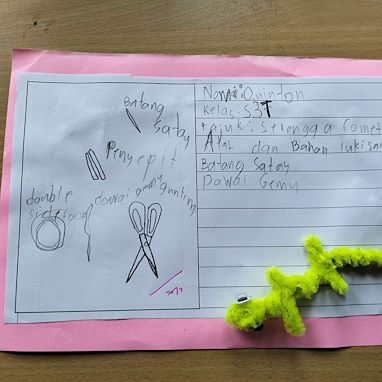 Batang
Satay
Penyepit
double
sidetape
dawai gemu
gunting
Nama: Quinton
Kelas: S3T
Tajuk: Serangga Comel
Alat dan Bahan lukisan
Batang Satay
Dawai Gemu